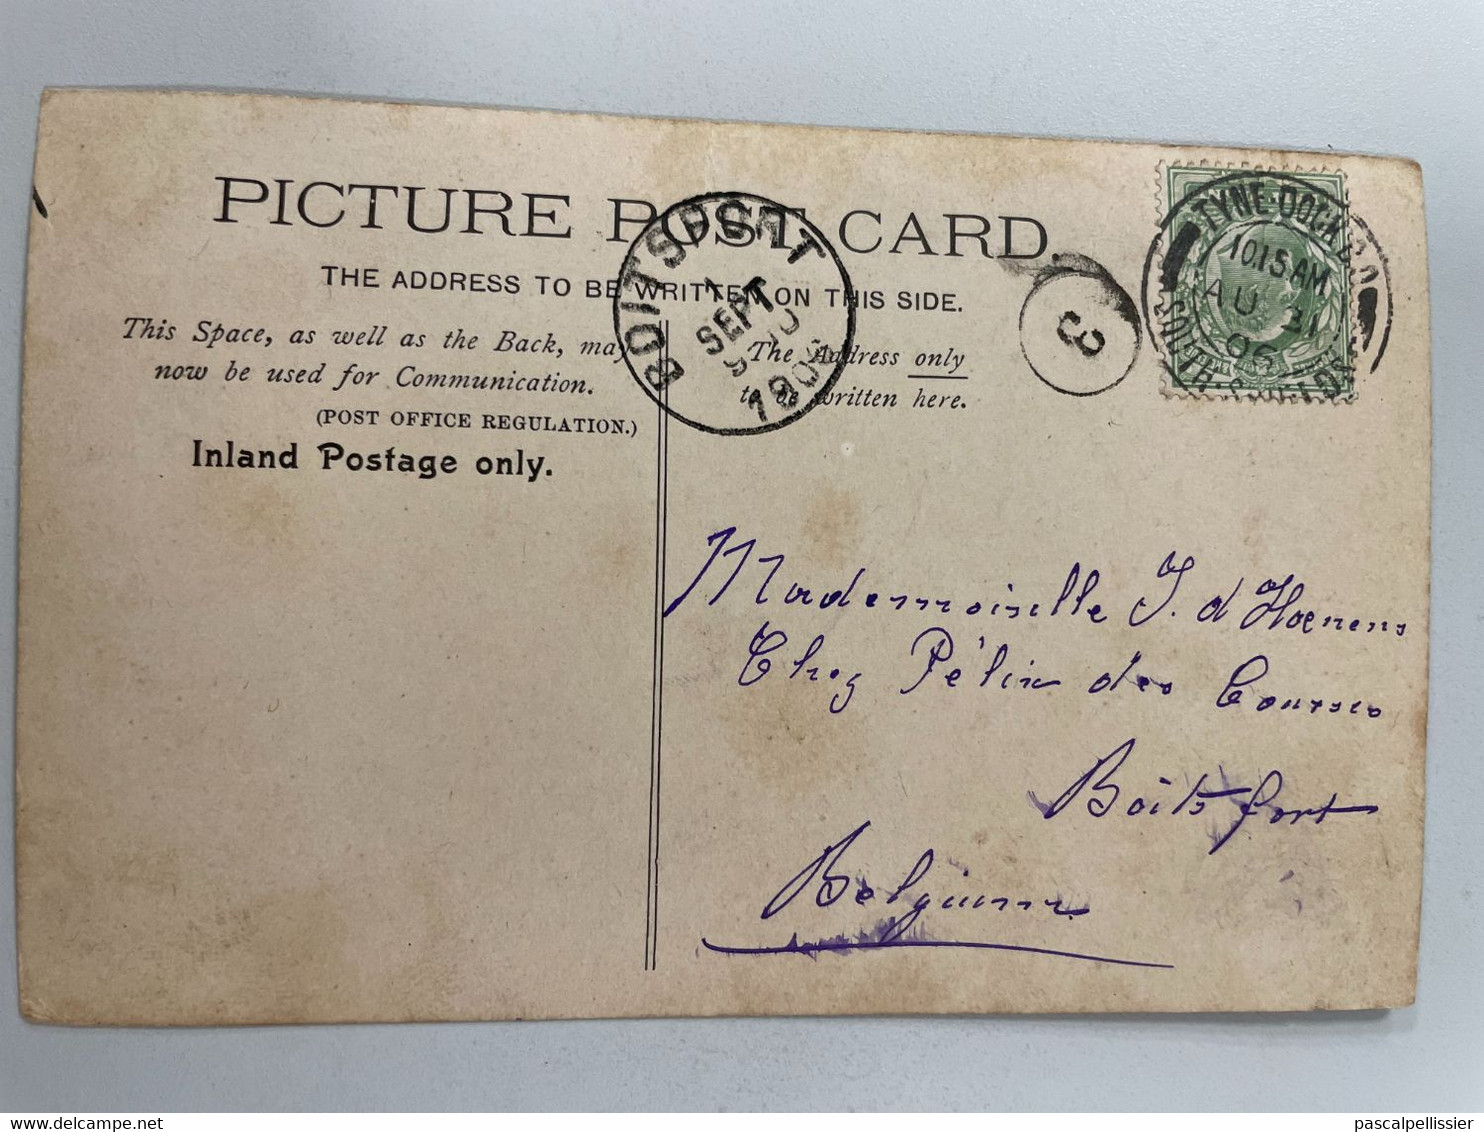 PICTURE POST CARD.
THE ADDRESS TO BE WRITTEN ON THIS SIDE.
This Space, as well as the Back, may
now be used for Communication.
(POST OFFICE REGULATION.)
Inland Postage only.
The Address only
to be written here.
BOITSFORT
1
SEPT
9-10
1906
3
TYNE-DOCK B.O
10.15 AM
AU 31
06
SOUTH-SHIELDS
Mademoiselle J. d'Hoenens
Chez Pélin des Courses
Boitsfort
Belgium
pascalpellissier